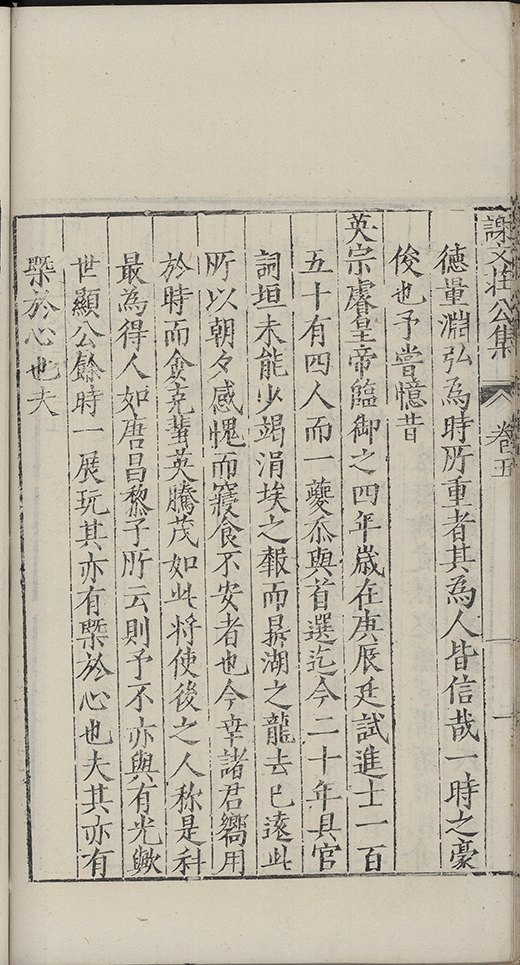 謝文莊公集
卷五
一
德量淵弘為時所重者其為人皆信哉一時之豪
俊也予嘗憶昔
英宗睿皇帝臨御之四年歲在庚辰廷試進士一百
五十有四人而一夔忝與首選迄今二十年具官
詞垣未能少竭涓埃之報而鼎湖之龍去已遠此
所以朝々感愧而寢食不安者也今幸諸君嚮用
於時而僉克蜚英騰茂如此將使後之人称是科
最為得人如唐昌黎子所云則予不亦與有光歟
世顯公餘時一展玩其亦有槩於心也夫其亦有
槩於心也夫